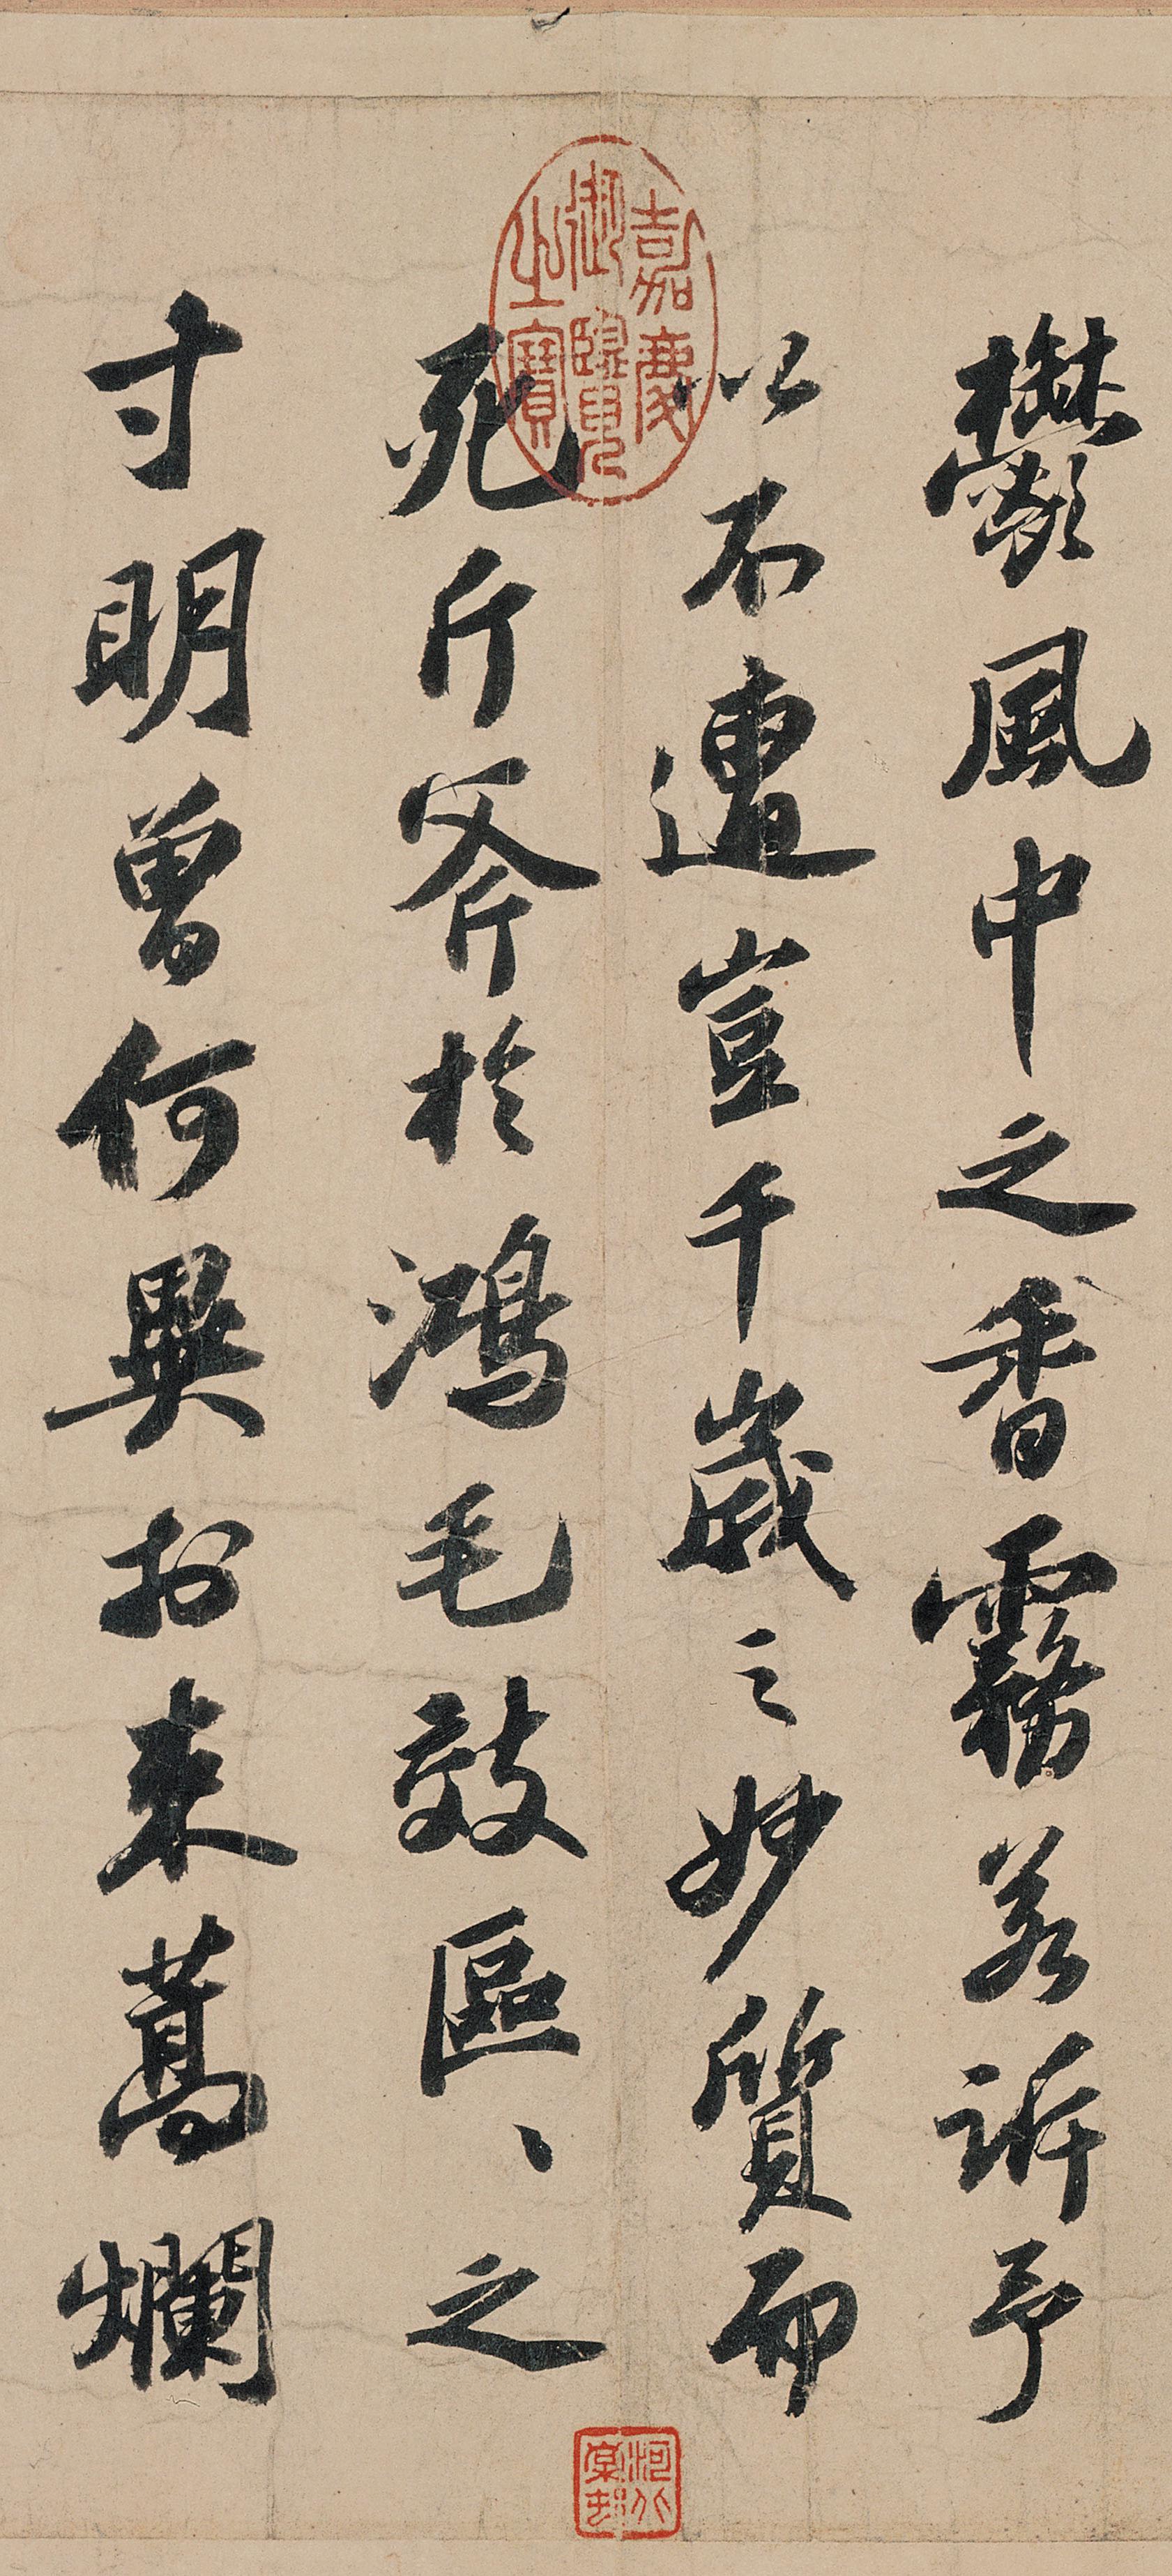 鬱風中之香霧若訴予
以不遭豈千歲之妙質而
死斤斧於鴻毛效區、之
寸明曾何異扵束蒿爛
嘉慶御覽之寶
河北棠村